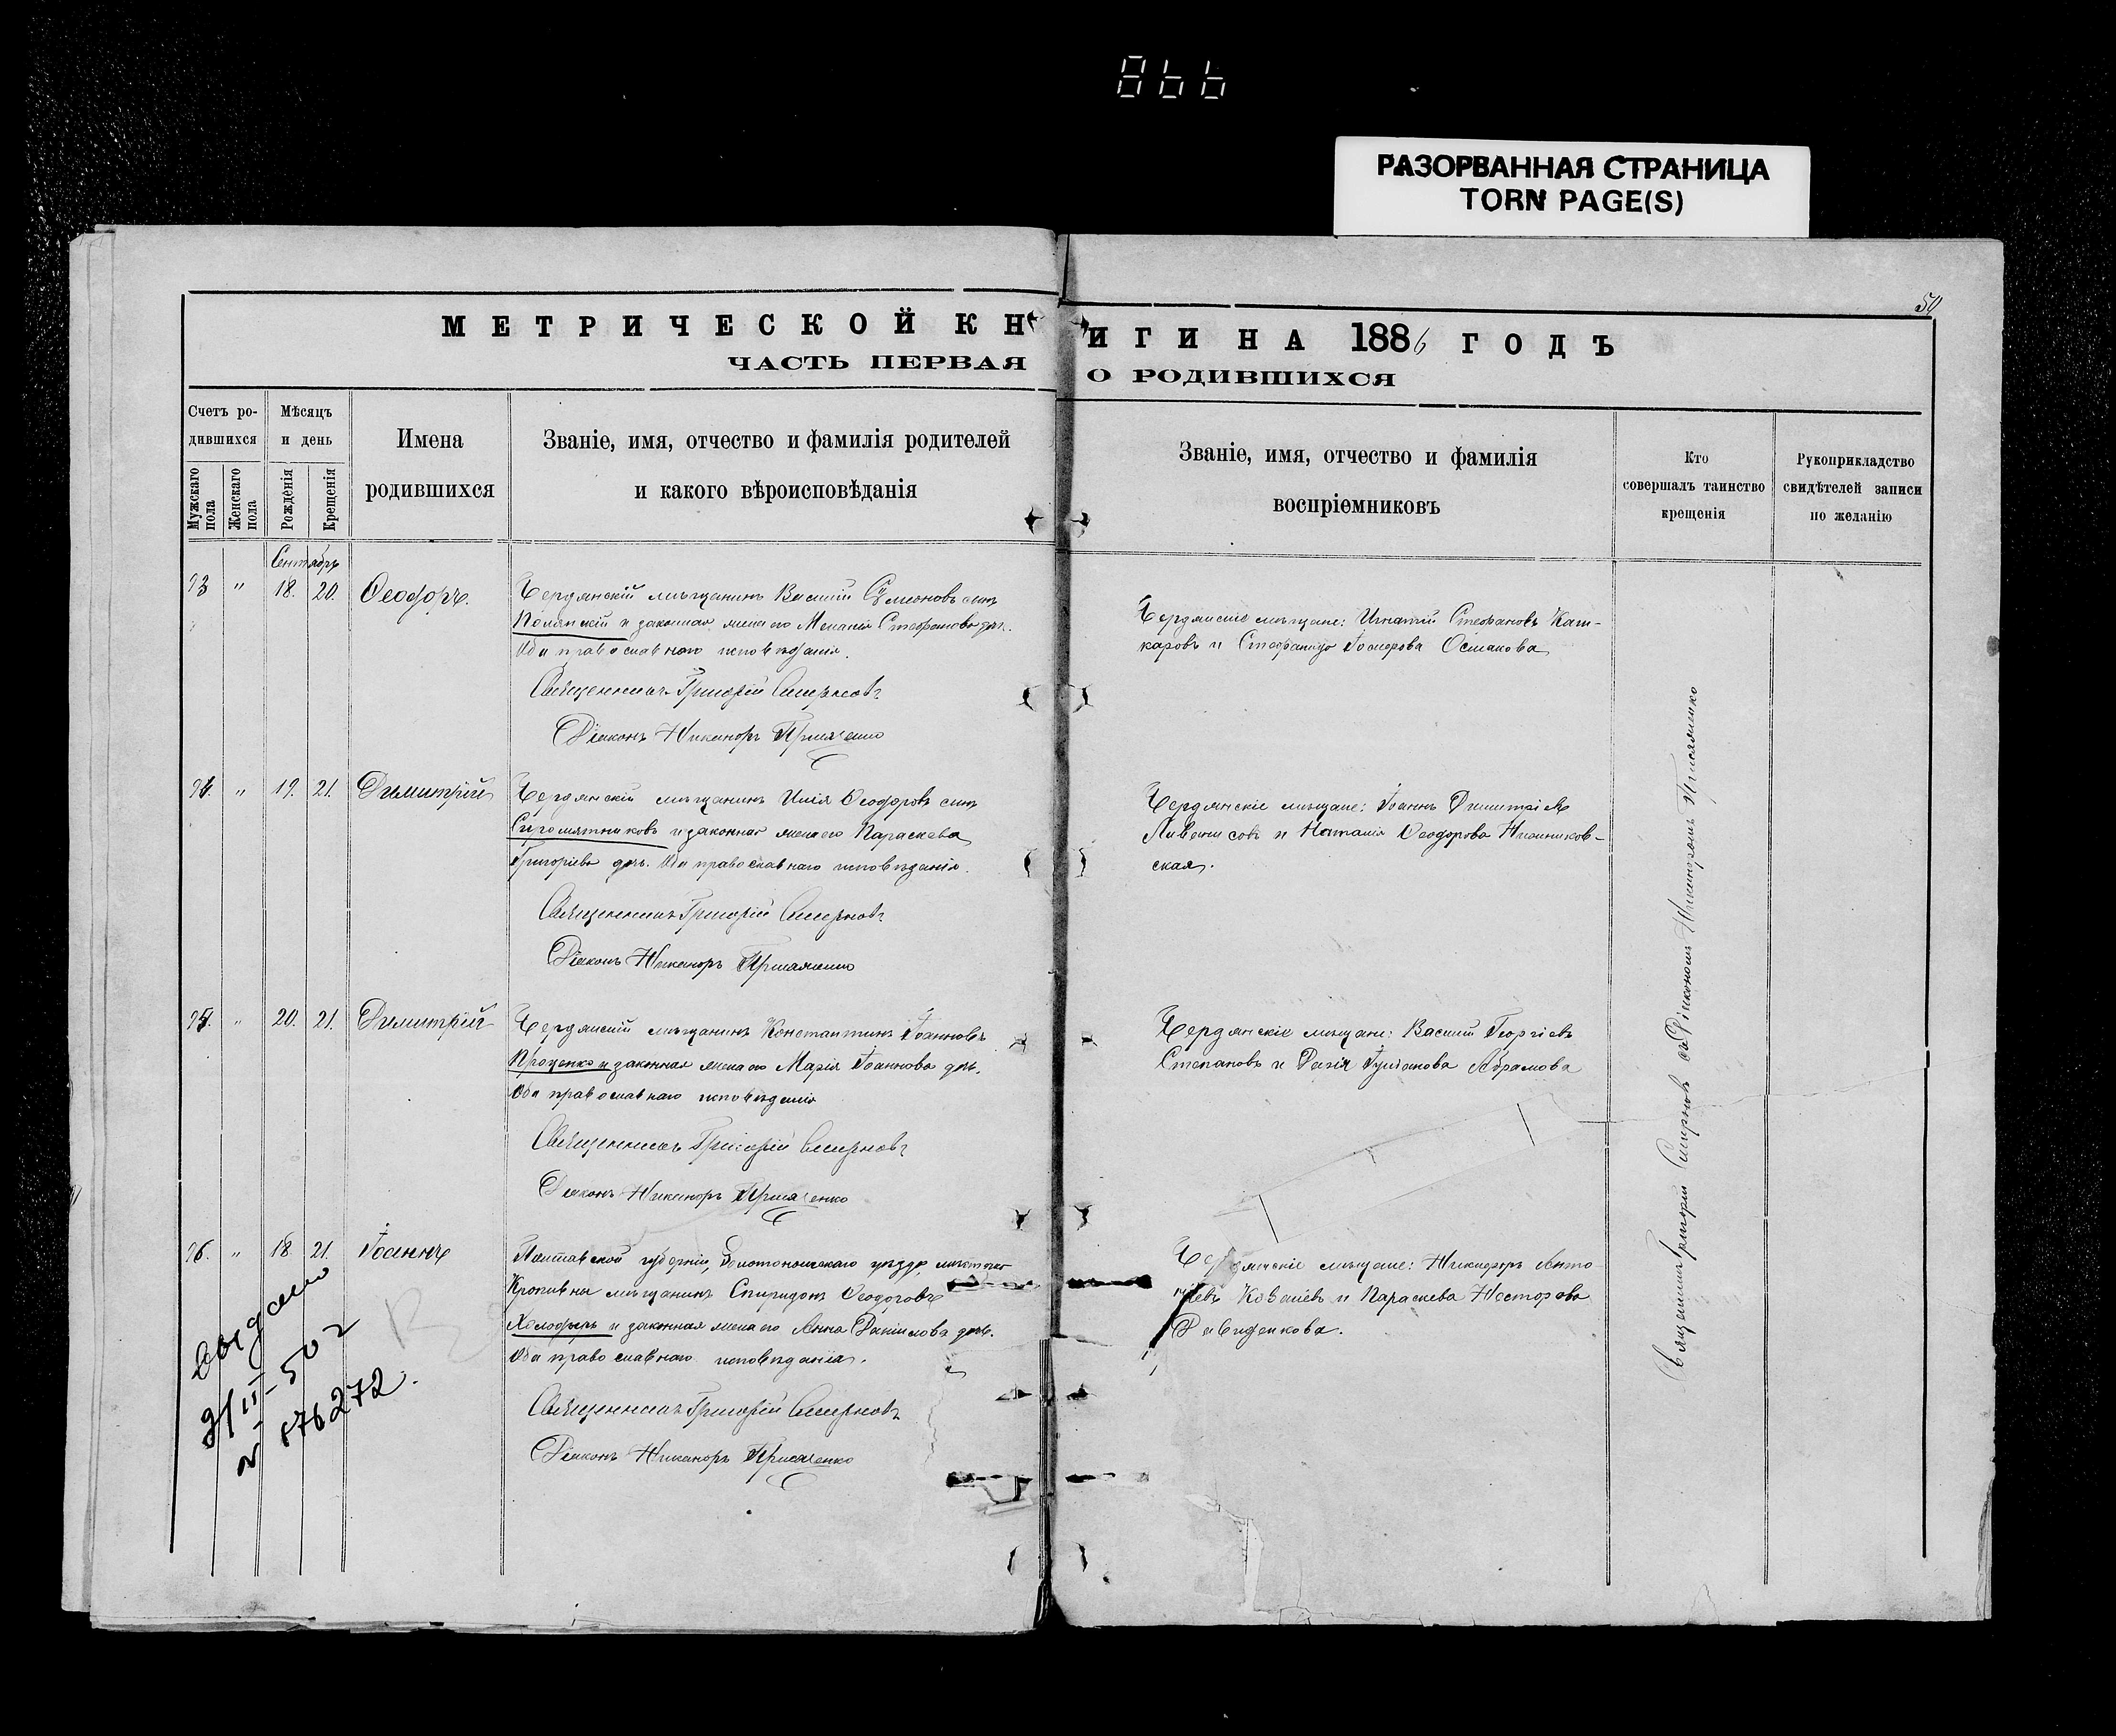 866
РАЗОРВАННАЯ СТРАНИЦА
TORN PAGE(S)
50
МЕТРИЧЕСКОЙ КНИГИ НА 1886 ГОДЪ
ЧАСТЬ ПЕРВАЯ О РОДИВШИХСЯ
Счетъ ро-
дившихся
Мужскаго пола
Женскаго пола
Мѣсяцъ
и день
Рожденія
Крещенія
Имена
родившихся
Званіе, имя, отчество и фамилія родителей
и какого вѣроисповѣданія
Званіе, имя, отчество и фамилія
воспріемниковъ
Кто
совершалъ таинство
крещенія
Рукоприкладство
свидѣтелей записи
по желанію
Сентябрь
93 " 18. 20. Ѳеодоръ.
Бердянскій мѣщанинъ Василій Сѵмеоновъ сынъ
Полянскій и законная жена его Меланія Стефанова доч.
Оба православнаго исповѣданія.
Священникъ Григорій Смирновъ
Діаконъ Никаноръ Присяженко
Бердянскіе мѣщане: Игнатій Стефановъ Каш-
каровъ и Стефанида Іосифова Осмакова
94. " 19. 21. Димитрій
Бердянскій мѣщанинъ Илія Ѳеодоровъ сынъ
Сыромятниковъ и законная жена его Параскева
Григорьева дочь. Оба православнаго исповѣданія.
Священникъ Григорій Смирновъ
Діаконъ Никаноръ Присяженко
Бердянскіе мѣщане: Іоаннъ Димитріевъ
и Наталія Ѳеодорова
ская.
95. " 20. 21. Димитрій
Бердянскій мѣщанинъ Константинъ Іоанновъ
Проценко и законная жена его Марія Іоаннова дочь.
Оба православнаго исповѣданія
Священникъ Григорій Смирновъ
Діаконъ Никаноръ Присяженко
Бердянскіе мѣщане: Василій Георгіевъ
Степановъ и Абрамова
96. " 18 21. Іоаннъ
Полтавской губерніи, Золотоношскаго уѣзда, мѣстечка
Кропивны мѣщанинъ Спиридонъ Ѳеодоровъ
Холодырь и законная жена его Анна Даніилова дочь.
Оба православнаго исповѣданія.
Священникъ Григорій Смирновъ
Діаконъ Никаноръ Присяженко
Бердянскіе мѣщане: Никифоръ Анто-
ніевъ Ковалевъ и Параскева Несторова
Давиденкова.
выдано
502
176272.
Священникъ Григорій Смирновъ съ Діакономъ Никаноромъ Присяженко